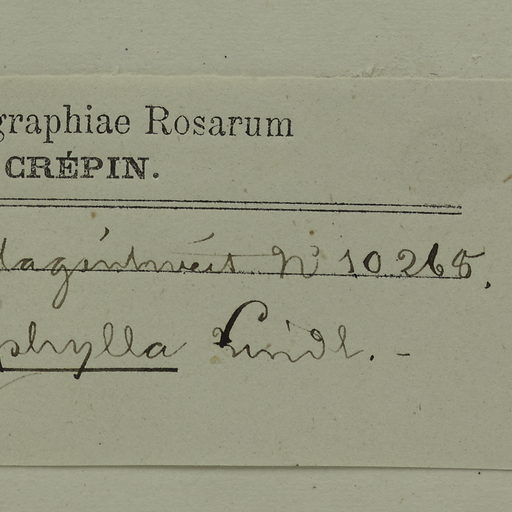 graphiae Rosarum
CRÉPIN.
N° 10265.
phylla Lindl. –